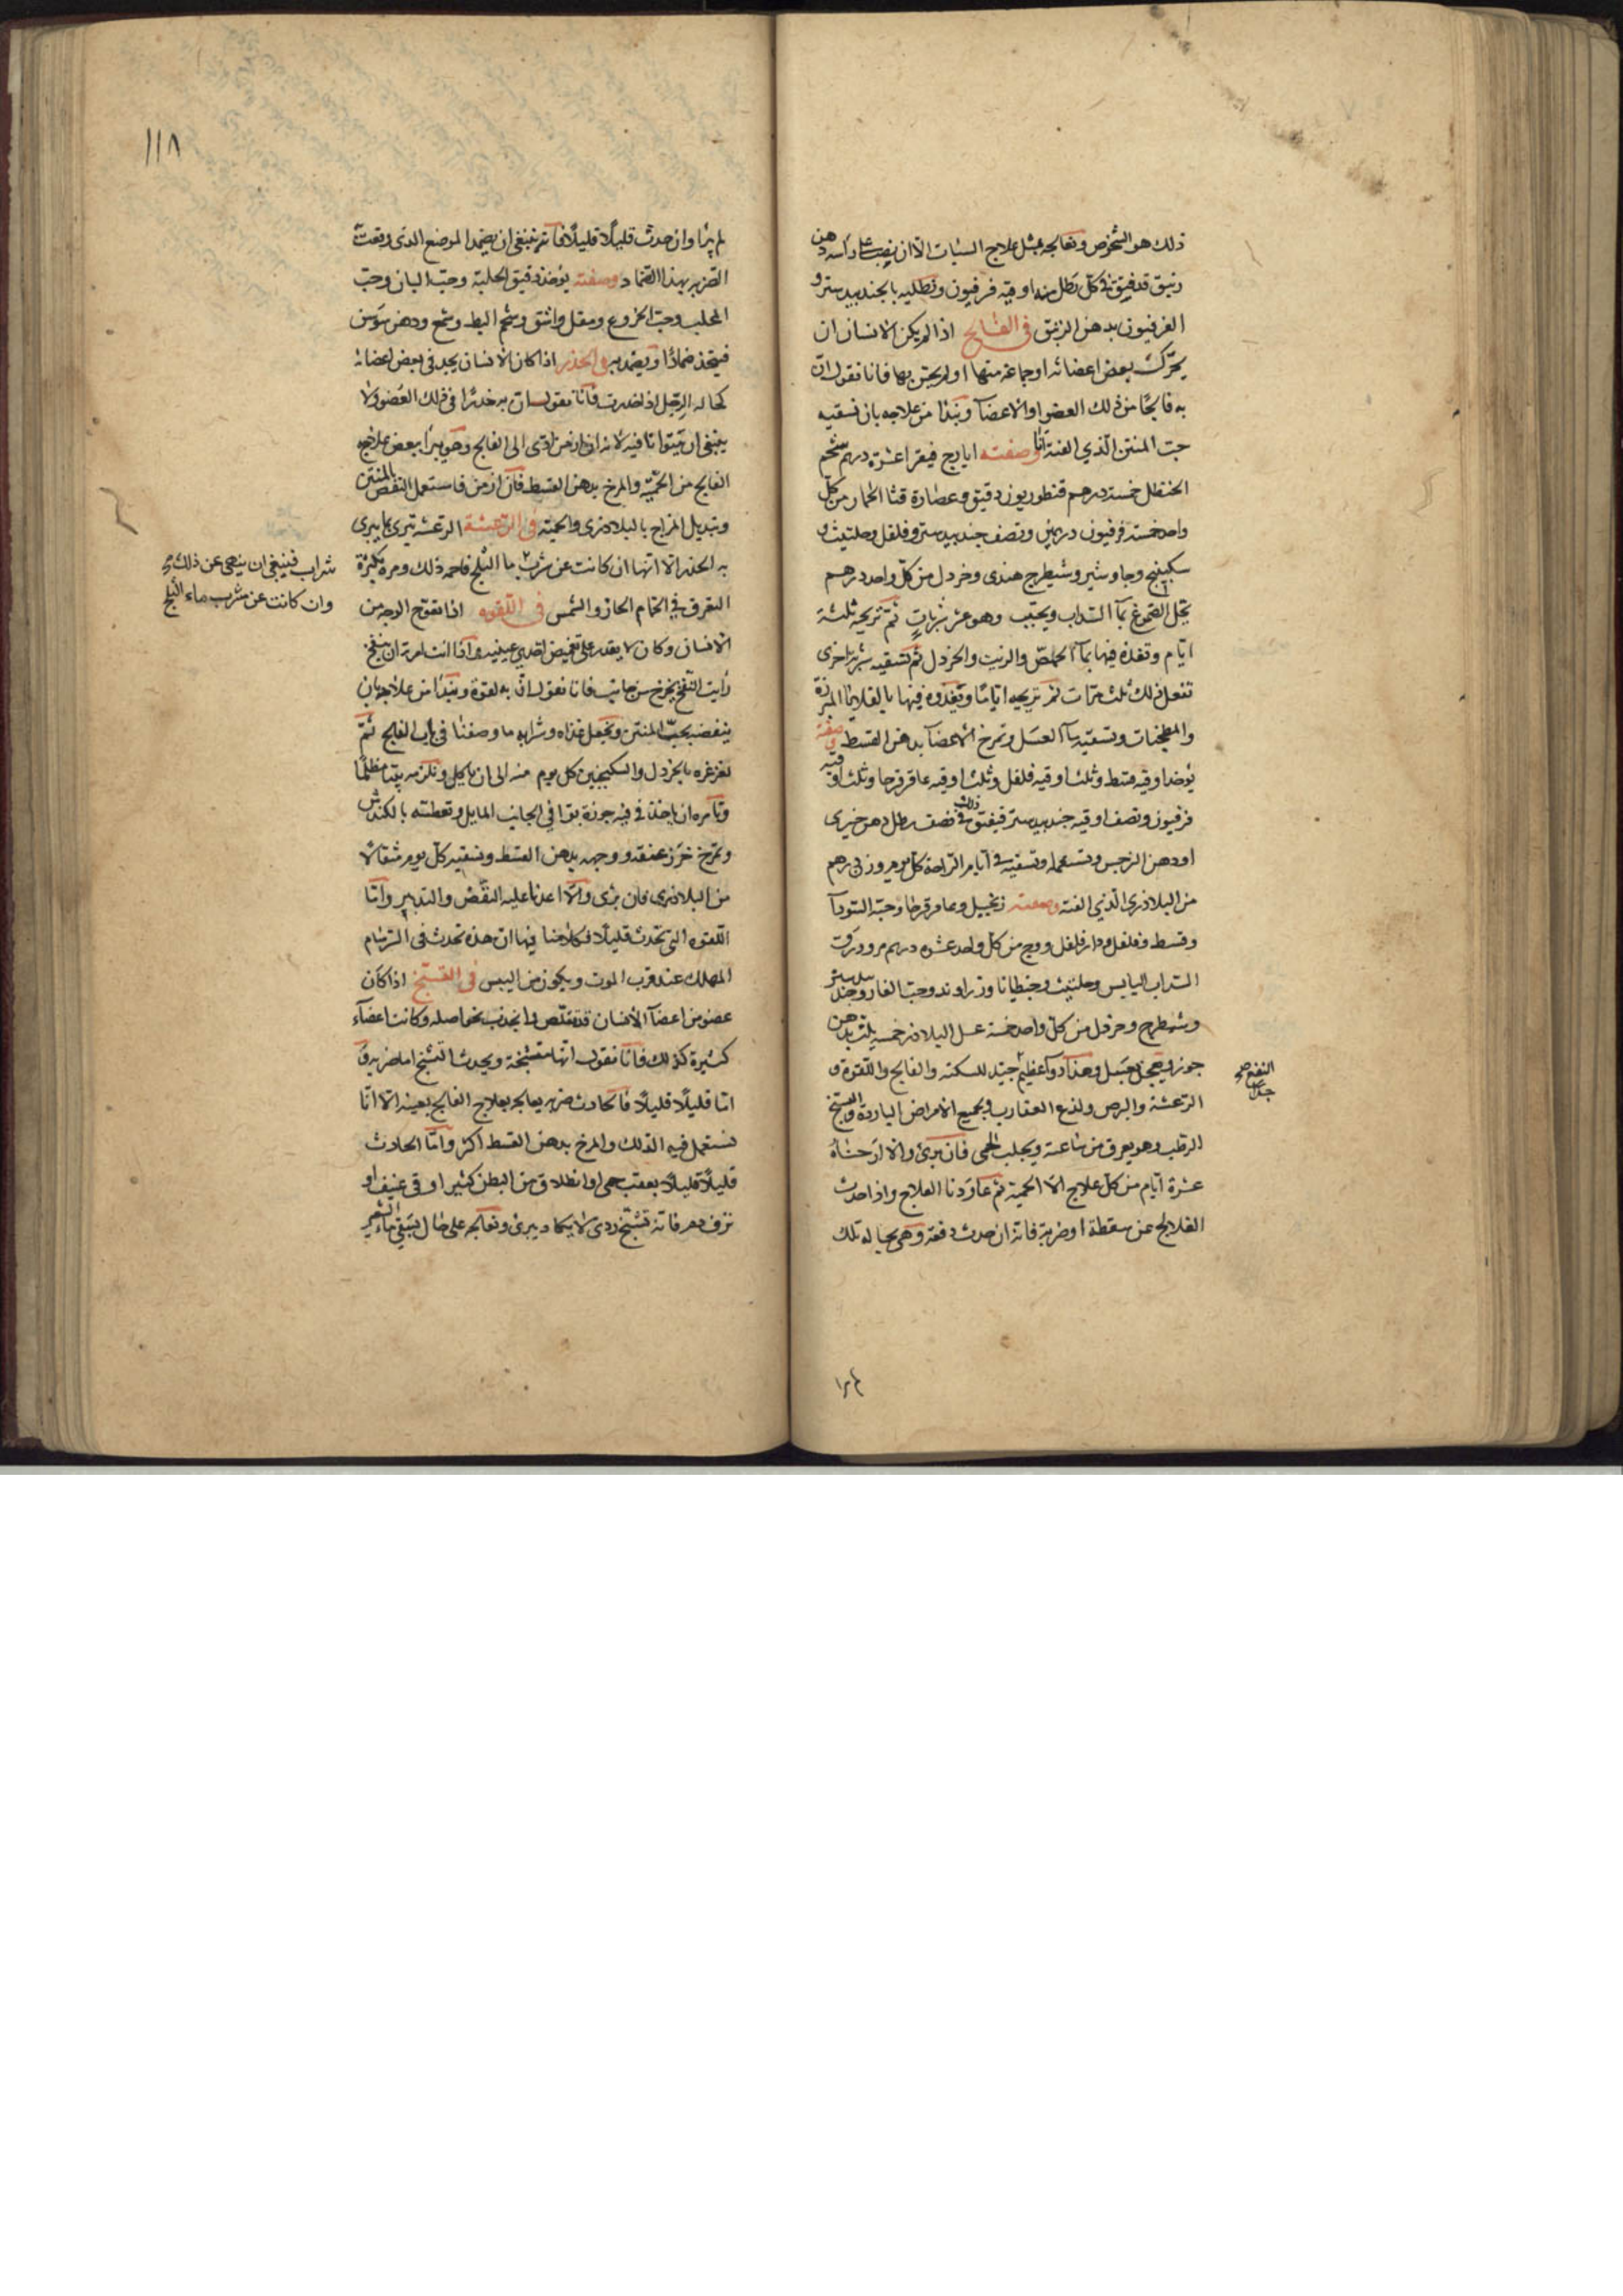 ذلك هو الشخوص ونعالجه بمثل علاج السبات الا ان يصب على راسه دهن
زنبق قد فتق في كل رطل منه اوقية فرفيون ونطليه بالجندبيدستر و
الفرفيون بدهن الزنبق في الفالج اذا لم يكن الانسان ان
يحرك بعض اعضائه او جماعة منها او لم يحس بها فانا نقول ان
به فالجا من ذلك العضو او الاعضا ونبدا من علاجه بان نسقيه
حب المنتن الذي الفته انا وصفته ايارج فيقرا عشرة درهم شحم
الحنظل خمسة درهم قنطوريون دقيق وعصارة قثا الحمار من كل
واحد خمسة فرفيون درهمين ونصف جندبيدستر وفلفل وحلتيث و
سكبينج وجاوشير وشيطرج هندى وخردل من كل واحد درهم
تحل الصموغ بما السداب ويحبب وهو عشر شربات ثم تريحه ثلثة
ايام وتغذه فيها بما الحمص والزيت والخردل ثم تسقيه شربة اخرى
تفعل ذلك ثلث مرات ثم تريحه اياما وتغذوه فيها بالقلايا المبزرة
والمطجنات وتسقيه ما العسل وتمرخ الاعضا بدهن القسط صفته
يؤخذ اوقية قسط وثلث اوقية فلفل وثلث اوقية عاقرقرحا وثلث اوقية
فرفيون ونصف اوقية جندبيدستر فيفتق ذلك في نصف رطل دهن خيرى
او دهن النرجس ويستعمله وتسقيه في ايام الراحة كل يوم وزن درهم
من البلاذرى الذي الفته وصفته زنجبيل وعاقرقرحا وحبة السودآ
وقسط وفلفل ودارفلفل ووج من كل واحد عشره درهم وورق
السداب اليابس وحلتيث وجنطيانا وزراوند وحب الغار وجندبيدستر
وشيطرج وخردل من كل واحد خمسة عسل البلاذر خمسه يلت بدهن
جوز ويعجن بعسل وهذا دوآ عظيم جيد للسكته والفالج واللقوة و
النفع صح
جدا
الرعشة والبرص ولذع العقارب وجميع الامراض الباردة والتشنج
الرطب وهو يعرق من ساعته ويجلب الحمى فان برئ والا ارحناه
عشرة ايام من كل علاج الا الحمية ثم عاودنا العلاج واذا حدث
الفالج عن سقطة او ضربة فانه ان حدث دفعة وهى بحاله تلك
١١٨
لم يبرا وان حدث قليلا قليلا فانه ينبغى ان يضمد الموضع الذى وقعت
الضربه بهذا الضماد وصفته يؤخذ دقيق الحلبة وحب البان وحب
المحلب وحب الخروع ومقل واشق وشحم البط وشمع ودهن سوسن
فيتخذ ضمادا ويضمد به في الخدر اذا كان الانسان يجد فى بعض اعضائه
كحالة الرجل اذا خدرت فانا نقول ان به خدرا فى ذلك العضو ولا
ينبغى ان يتوانا فيه لانه اذا ازمن ادى الى الفالج وهو يبرا ببعض علاج
الفالج من الحمية والمرخ بدهن القسط فان ازمن فاستعمل النفض بالمنتن
وتبديل المزاج بالبلاذرى والحمية في الرعشة الرعشه تبرى بما يبرى
به الخدر الا انها ان كانت عن شرب ما الثلج فاحمه ذلك ومره بكثرة
شراب فينبغى ان ينهى عن ذلك
وان كانت عن شرب ماء الثلج
التعرق في الحمام الحار والشمس في اللقوه اذا تعوج الوجه من
الانسان وكان لا يقدر على تغميض احدى عينيه واذا انت امرته ان ينفخ
رايت النفخ يخرج من جانب فانا نقول ان به لقوة ونبدا من علاجه بان
ينفضه بحب المنتن ونجعل غذاه وشرابه ما وصفنا فى باب الفالج ثم
نغرغره بالخردل والسكنجبين كل يوم منه الى ان ياكل ونلزمه بيتا مظلما
ونامره ان ياخذ في فيه جوزة بوا في الجانب المايل ونعطسه بالكندش
ونمرخ خرز عنقه ووجهه بدهن القسط ونسقيه كل يوم مثقالا
من البلاذرى فان برى والا اعدنا عليه النفض والتدبير واما
اللقوه التى تحدث قليلا فكلامنا فيها ان هذه تحدث فى السرسام
المهلك عند قرب الموت ويكون من اليبس في التشنج اذا كان
عضو من اعضآ الانسان قد تقلص وانجذب نحو اصله وكانت اعضآء
كثيرة كذلك فانا نقول انها متشنجة ويحدث التشنج اما ضربة و
اما قليلا قليلا فالحادث ضربه يعالج بعلاج الفالج بعينه الا انا
نستعمل فيه الدلك والمرخ بدهن القسط اكثر واما الحادث
قليلا قليلا بعقب حمى او انطلاق من البطن كثير او قى عنيف او
نزف دم فانه تشنج ردى لا يكاد يبرئ ونعالجه على حال بسقى ماء الشعير